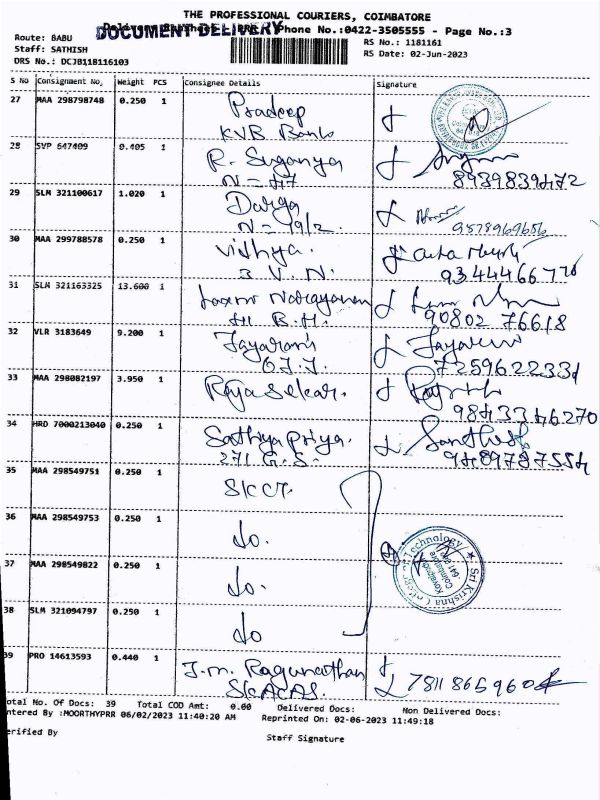 THE PROFESSIONAL COURIERS, COIMBATORE
DOCUMENT DELIVERY
Phone No.:0422-3505555 - Page No.:3
Route: BABU
RS No.: 1181161
Staff: SATHISH
RS Date: 02-Jun-2023
DRS No.: DCJB118116103
S No Consignment No. Weight PCS Consignee Details Signature
27 MAA 298798748 0.250 1 Pradeep
KVB Bank
28 SVP 647409 0.405 1 R. Suganya
N = 47 8939839472
29 SLM 321100617 1.020 1 Durga
N = 19/2. 9578969656
30 MAA 299788578 0.250 1 Vidhya.
3 V. N. 9344466770
31 SLM 321163325 13.600 1 Laxmi Narayanan
B.H. 90802 76618
32 VLR 3183649 9.200 1 Jayarani Jayarani
7259622331
33 MAA 298082197 3.950 1 Rajasekar.
9843346270
34 HRD 7000213040 0.250 1 Sathiyapriya. Santhosh
271 G.S. 9489787554
35 MAA 298549751 0.250 1 SKCT.
36 MAA 298549753 0.250 1 do.
37 MAA 298549822 0.250 1 do.
Sri Krishna College of Technology
Kovaipudur
Coimbatore
641 042
38 SLM 321094797 0.250 1 do
39 PRO 14613593 0.440 1 J.M. Ragunathan
SKACAS. 7811865960
otal No. Of Docs: 39 Total COD Amt: 0.00 Delivered Docs: Non Delivered Docs:
ntered By :MOORTHYPRR 06/02/2023 11:40:20 AM Reprinted On: 02-06-2023 11:49:18
erified By
Staff Signature